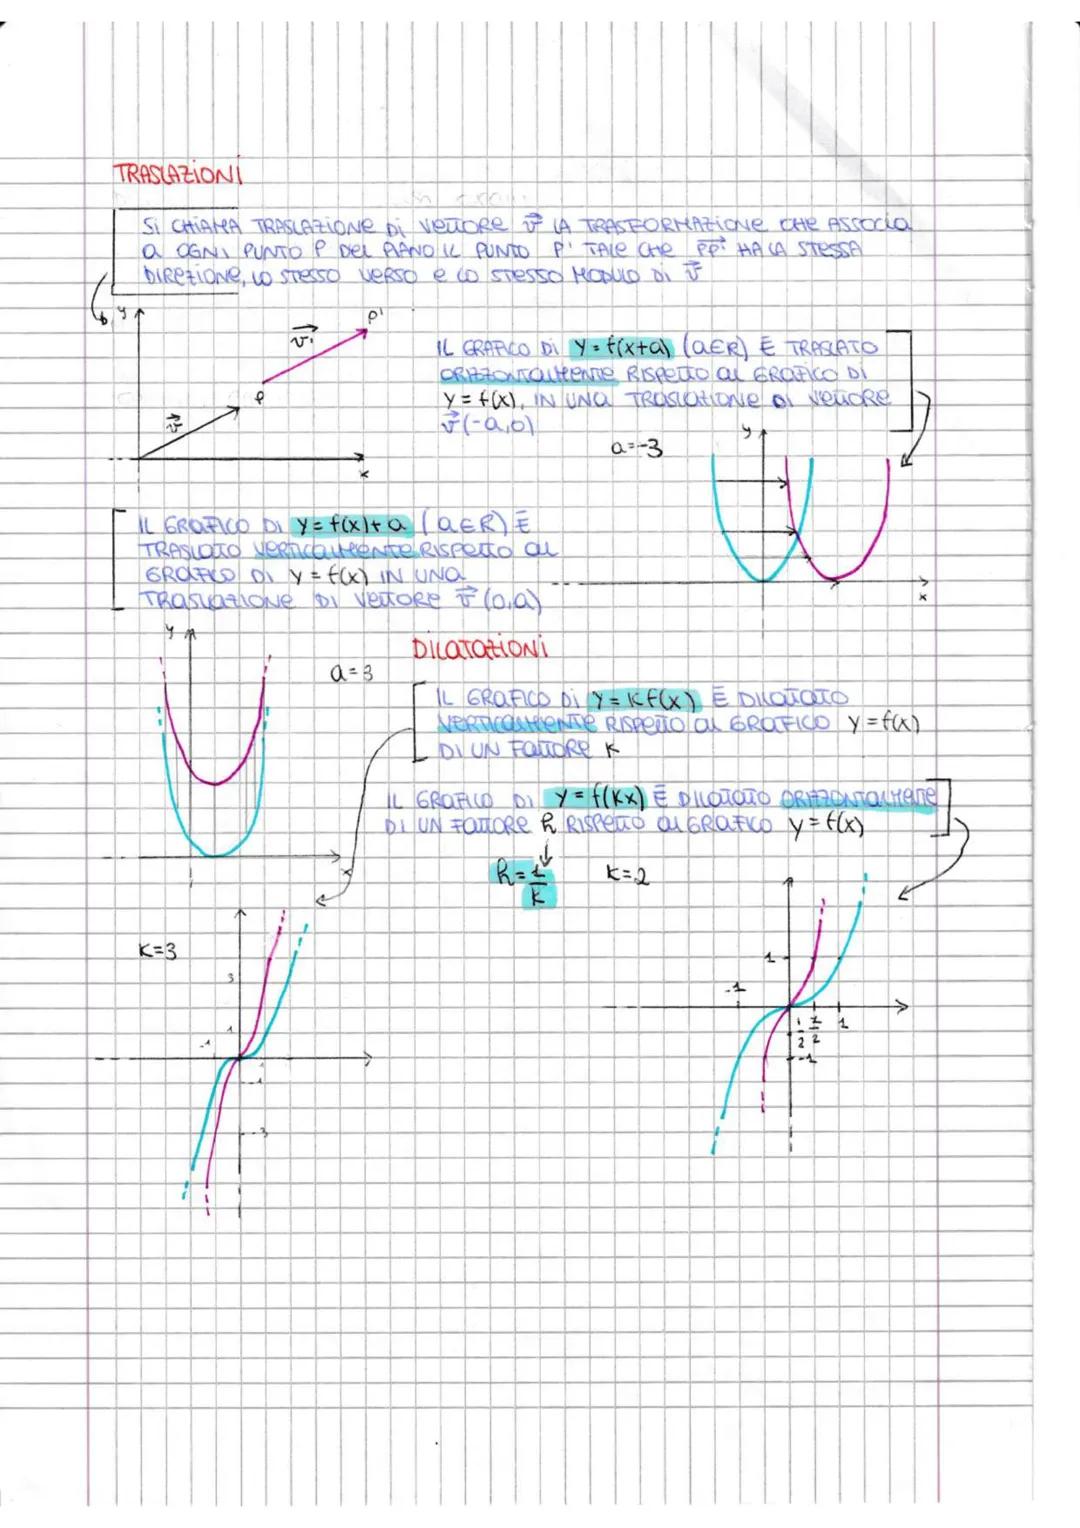 TRASLAZIONI
SI CHIAMA TRASLAZIONE DI VETTORE v⃗ LA TRASFORMAZIONE CHE ASSOCIA
A OGNI PUNTO P DEL PIANO IL PUNTO P' TALE CHE PP'⃗ HA LA STESSA
DIREZIONE, LO STESSO VERSO E LO STESSO MODULO DI v⃗
y
P'
v⃗'
P
v⃗
x
IL GRAFICO DI y=f(x+a) (a∈R) È TRASLATO
ORIZZONTALMENTE RISPETTO AL GRAFICO DI
y=f(x), IN UNA TRASLAZIONE DI VETTORE
v⃗(-a,0)
a=-3
y
x
IL GRAFICO DI y=f(x)+a (a∈R) È
TRASLATO VERTICALMENTE RISPETTO AL
GRAFICO DI y=f(x) IN UNA
TRASLAZIONE DI VETTORE v⃗(0,a)
y
a=3
x
DILATAZIONI
IL GRAFICO DI y=Kf(x) È DILATATO
VERTICALMENTE RISPETTO AL GRAFICO y=f(x)
DI UN FATTORE K
IL GRAFICO DI y=f(Kx) È DILATATO ORIZZONTALMENTE
DI UN FATTORE h RISPETTO AL GRAFICO y=f(x)
h=1/K
K=2
K=3
3
1
-1
-1
-3
1
-1
1/2
1/2
1
-1